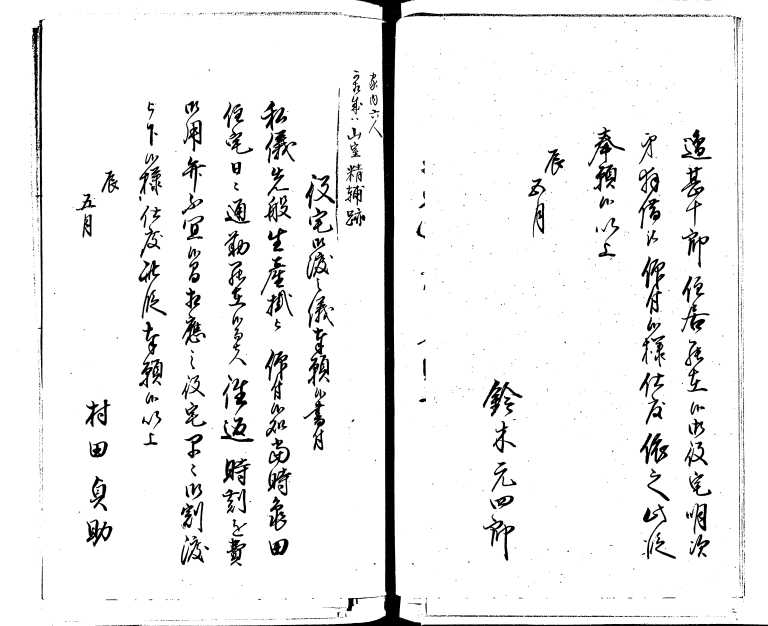 邊甚十郎住居罷在候御役宅明次
第拝借被 仰付候様仕度依之此段
奉願候以上
辰
五月
鈴木元四郎
家内六人
山室精輔跡
役宅御渡之儀奉願候書付
私儀先般生産掛被 仰付候処当時亀田
住宅日々通勤罷在候得共往返時刻を費
御用弁不宜候間相應之役宅早々御割渡
被下候様仕度此段奉願候以上
辰
五月
村田貞助